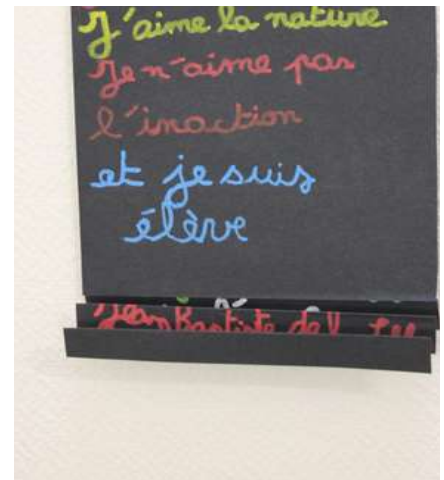 J'aime la nature
Je n'aime pas
l'inaction
et je suis
élève
Jean Baptiste de